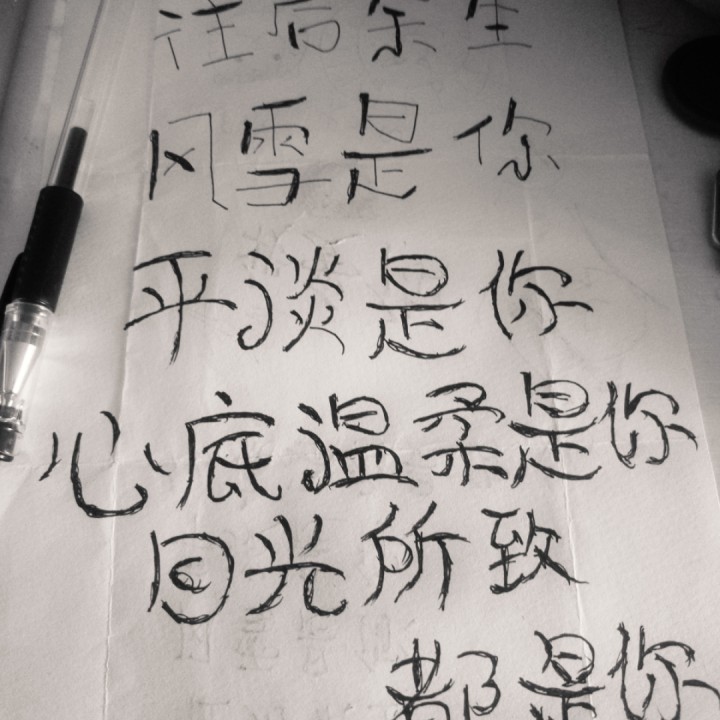 往后余生
风雪是你
平淡是你
心底温柔是你
目光所致
都是你